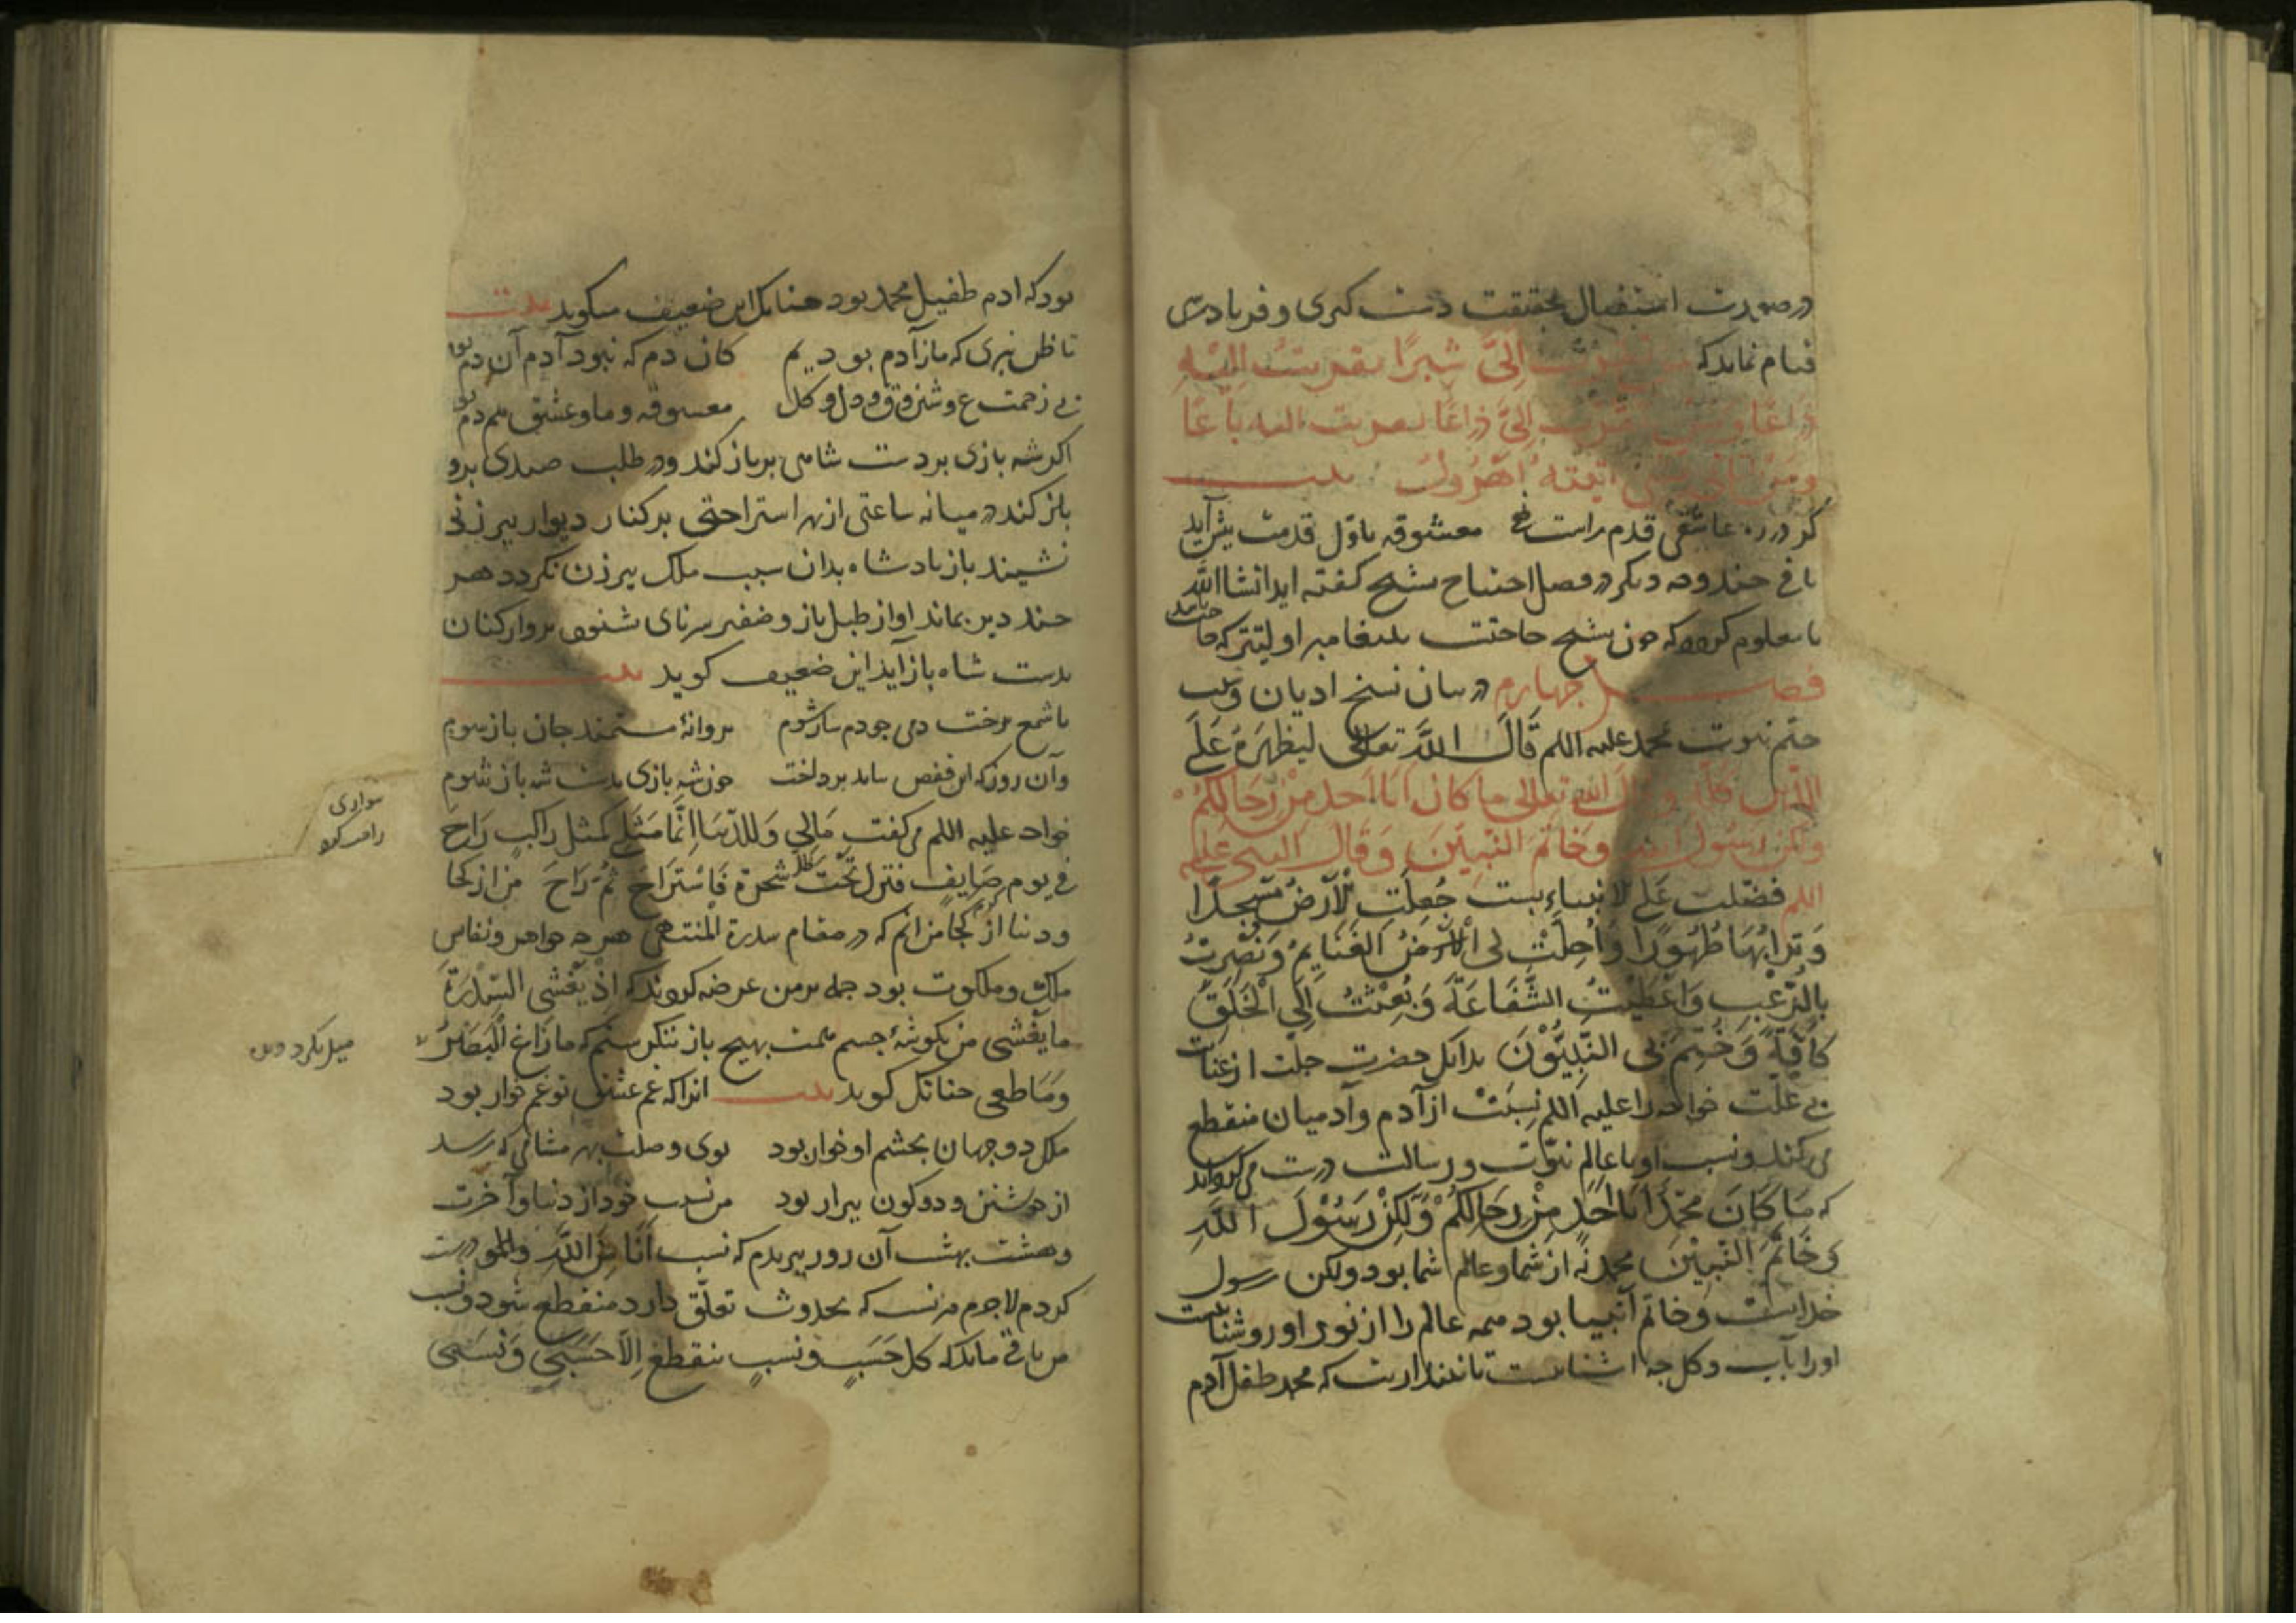 در صورت استقبال بحقیقت دست کیری و فریادرسی
قیام نماید که من تقرب الیّ شبرًا تقربت الیه
ذراعًا و من تقرب الیّ ذراعًا تقربت الیه باعًا
و من اتانی یمشی اتیته اهرول بیت
کر در ره عاشقی قدم راست نهی معشوقه باوّل قدمت پیش آید
باقی جند وجه دیکر در فصل احتیاج بشیخ کفته اید انشا الله
تا معلوم کردد که جون بشیخ حاجتست بپیغامبر اولیتر که حاجت باشد
فصل جهارم در بیان نسخ ادیان و
ختم نبوت محمد علیه اللم قَالَ اللهُ تعالی لیظهَرهُ عَلَی
الدّین کله و قال الله تعالی ما کان محمد اَبَا اَحَدٍ مِنْ رِجَالِکُمْ
ولکن رسُول الله وَخاتَمَ النَّبِیّینَ وَقَالَ النبی علیه
اللم فضّلت عَلی الانبیاء بست جُعِلَتِ لی الاَرضُ مسجدًا
وَ تُرابُهَا طُهُورًا وَاُحِلَّتْ لی الغَنَایِمُ وَنُصِرْتُ
بالرُّعْبِ وَاُعْطِیْتُ الشَّفَاعَةَ وَبُعِثْتُ اِلَی الْخَلْقِ
کَافَّةً وَخُتِمَ بی النَّبِیُّوْنَ بدانک حضرت جلت از عنایت
بی علّت خواجه را علیه اللم نسبَتْ از آدم و آدمیان منقطع
می کند و نسبت او با عالم نبوّت و رسالت درست می کرداند
که مَا کَانَ مُحَمَّدٌ اَبَا اَحَدٍ مِنْ رِجَالِکُمْ وَلٰکِنْ رَسُوْلَ اللهِ
وَ خَاتَمَ النَّبِیّیْنَ محمد نه از شما و عالم شما بود ولکن رسول
خداست و خاتم انبیا بود همه عالم را از نور او روشناست
او را بآب و کل جه اشناست تا نپنداریت که محمد طفیل آدم
بود که ادم طفیل محمد بود جنانک این ضعیف میکوید بیت
تا ظن نبری که ما ز آدم بودیم کان دم که نبود آدم آن دم بودیم
بی زحمت ع و ش و ق و دل و کل معشوقه و ما و عشق هم دم بودیم
اکر شه بازی بر دست شاهی پرباز کند و در طلب صیدی پرو
باز کند در میانه ساعتی از بهر استراحتی بر کنار دیوار پیر زنی
نشیند باز پادشاه بدان سبب ملک پیر زن نکردد هر
جند دیر بماند اواز طبل باز و صفیر سرنای شنود پرواز کنان
بدست شاه باز آید این ضعیف کوید بیت
با شمع رخت دمی جو دمساز شوم پروانهٔ مستمند جان باز شوم
وآن روز که این قفص بباید پرداخت جون شه بازی بدست شه باز شوم
خواجه علیه اللم می کفت مَالی وَللدُّنیَا اِنَّمَا مَثَلِی کَمَثَل رَاکِبٍ رَاحَ
فی یوم صَایِفٍ فنزل تَحْتَ ظل شجرة فَاسْتَرَاحَ ثُمَّ رَاحَ من از کجا
و دنیا از کجا من انم که در مقام سدرة المنتهی هر جه جواهر و نفایس
ملک و ملکوت بود جمله بر من عرضه کردند که اِذْ یَغْشَی السِّدْرَةَ
مَا یَغْشَی من بکوشهٔ جسم همت بهیج باز ننکرستم که مَا زَاغَ الْبَصَرُ
وَمَا طغی جنانک کوید بیت انرا که غم عشق تو غم خوار بود
ملک دو جهان بجشم او خوار بود بوی وصلت بهر مشامی که رسد
از خویشتن و دو کون بیزار بود من نسب خود از دنیا و آخرت
و هشت بهشت آن روز بریدم که نسب اَنَا مِنَ اللهِ درست
کردم لاجرم هر نسب که بحدوث تعلّق دارد منقطع شود و نسب
من باقی ماند که کل حَسَبٍ و نسبٍ ینقطع اِلّا حَسَبِی وَنَسَبی
سواری
میل نکرد